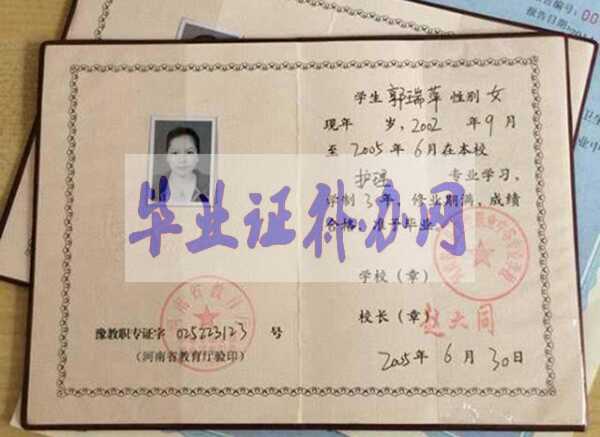 告编号:00
报告日期:201
学生 郭瑞苹 性别 女
现年 岁,2002 年9月
至2005年6月在本校
护理 专业学习,
学制3年,修业期满,成绩
合格,准予毕业。
毕业证补办网
学校(章)
校长(章) 赵大同
豫教职专证字 025223123 号
(河南省教育厅验印)
2005年6月30日